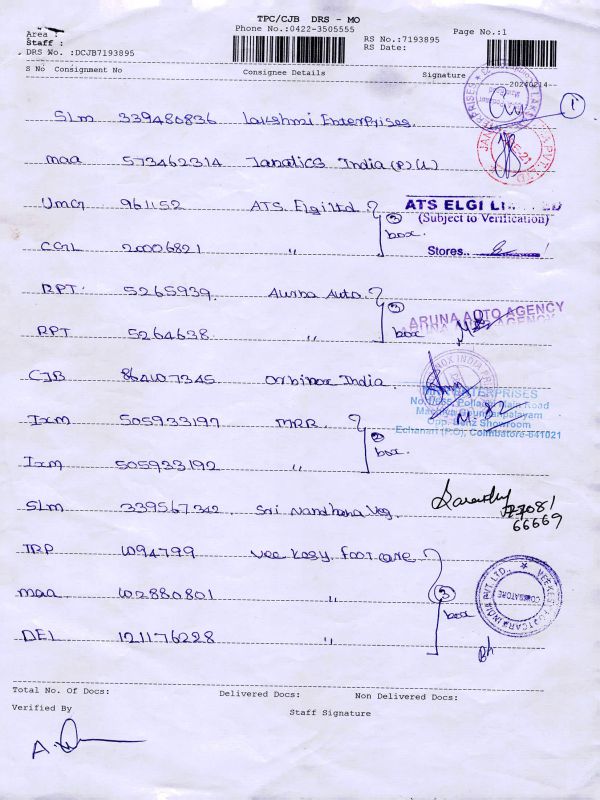 TPC/CJB DRS - MO
Area :
Phone No.:0422-3505555
Page No.:1
Staff :
RS No.:7193895
DRS No. :DCJB7193895
RS Date:
S No Consignment No Consignee Details Signature
20240214
SLM 339480836 Lakshmi Enterprises. 1
maa 573462314 Janatics India (P) (L)
UMG 961152 ATS. Elgi Ltd
ATS ELGI
(Subject to Verification)
box.
CGL 20006821 "
Stores..
RPT 5265939 Aruna Auto
RPT 5264638 "
box
ARUNA AUTO AGENCY
CJB 864107345 Orbinox India
ENTERPRISES
Ixm 505933197 MRR.
Showroom
Echanari (P.O), Coimbatore-641021
box.
Ixm 505933192 "
SLM 339567342 Sri Nandhana Veg.
66669
TRP 1094799 Vee Kesy. Footcare
maa 102880801 "
3
box
DEL 121176228 "
Total No. Of Docs: Delivered Docs: Non Delivered Docs:
Verified By
Staff Signature